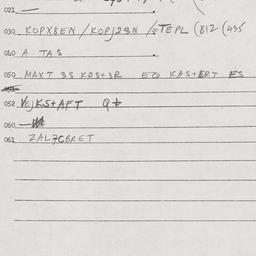 021 —
030 KOPX8EN / KOPJ23N /=TEPL (812 (435
040 A TAS
050 MAXT 3S KDS+3R EQ KAS+ERT ES
052 VEJKS+AFT Q+
060 —
062 ZAL7CBRET